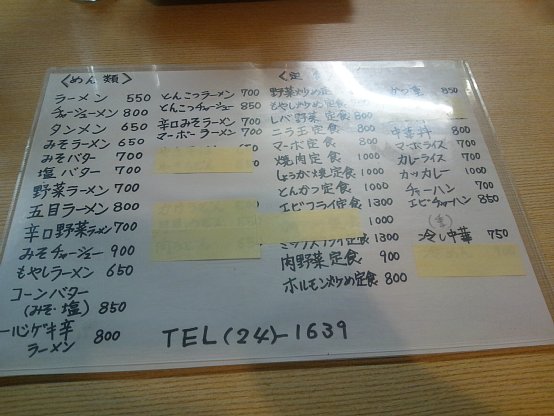 〈めん類〉
ラーメン 550
チャーシューメン 800
タンメン 650
みそラーメン 650
みそバター 700
塩バター 700
野菜ラーメン 700
五目ラーメン 800
辛口野菜ラーメン 700
みそチャーシュー 900
もやしラーメン 650
コーンバター
(みそ・塩) 850
辛
ラーメン 800
とんこつラーメン 700
とんこつチャーシュー 850
辛口みそラーメン 700
マーボーラーメン 700
〈定
野菜炒め定食 700
もやし炒め定食 700
レバ野菜定食 800
ニラ玉定食 700
マーボ定食 800
焼肉定食 1000
しょうが焼定食 1000
とんかつ定食 1000
エビフライ定食 1300
1000
ミックスフライ定食 1300
肉野菜定食 900
ホルモン炒め定食 800
かつ重 850
中華丼 800
マーボライス 700
カレーライス 700
カツカレー 1000
チャーハン 700
エビチャーハン 850
冷し中華 750
TEL(24)-1639